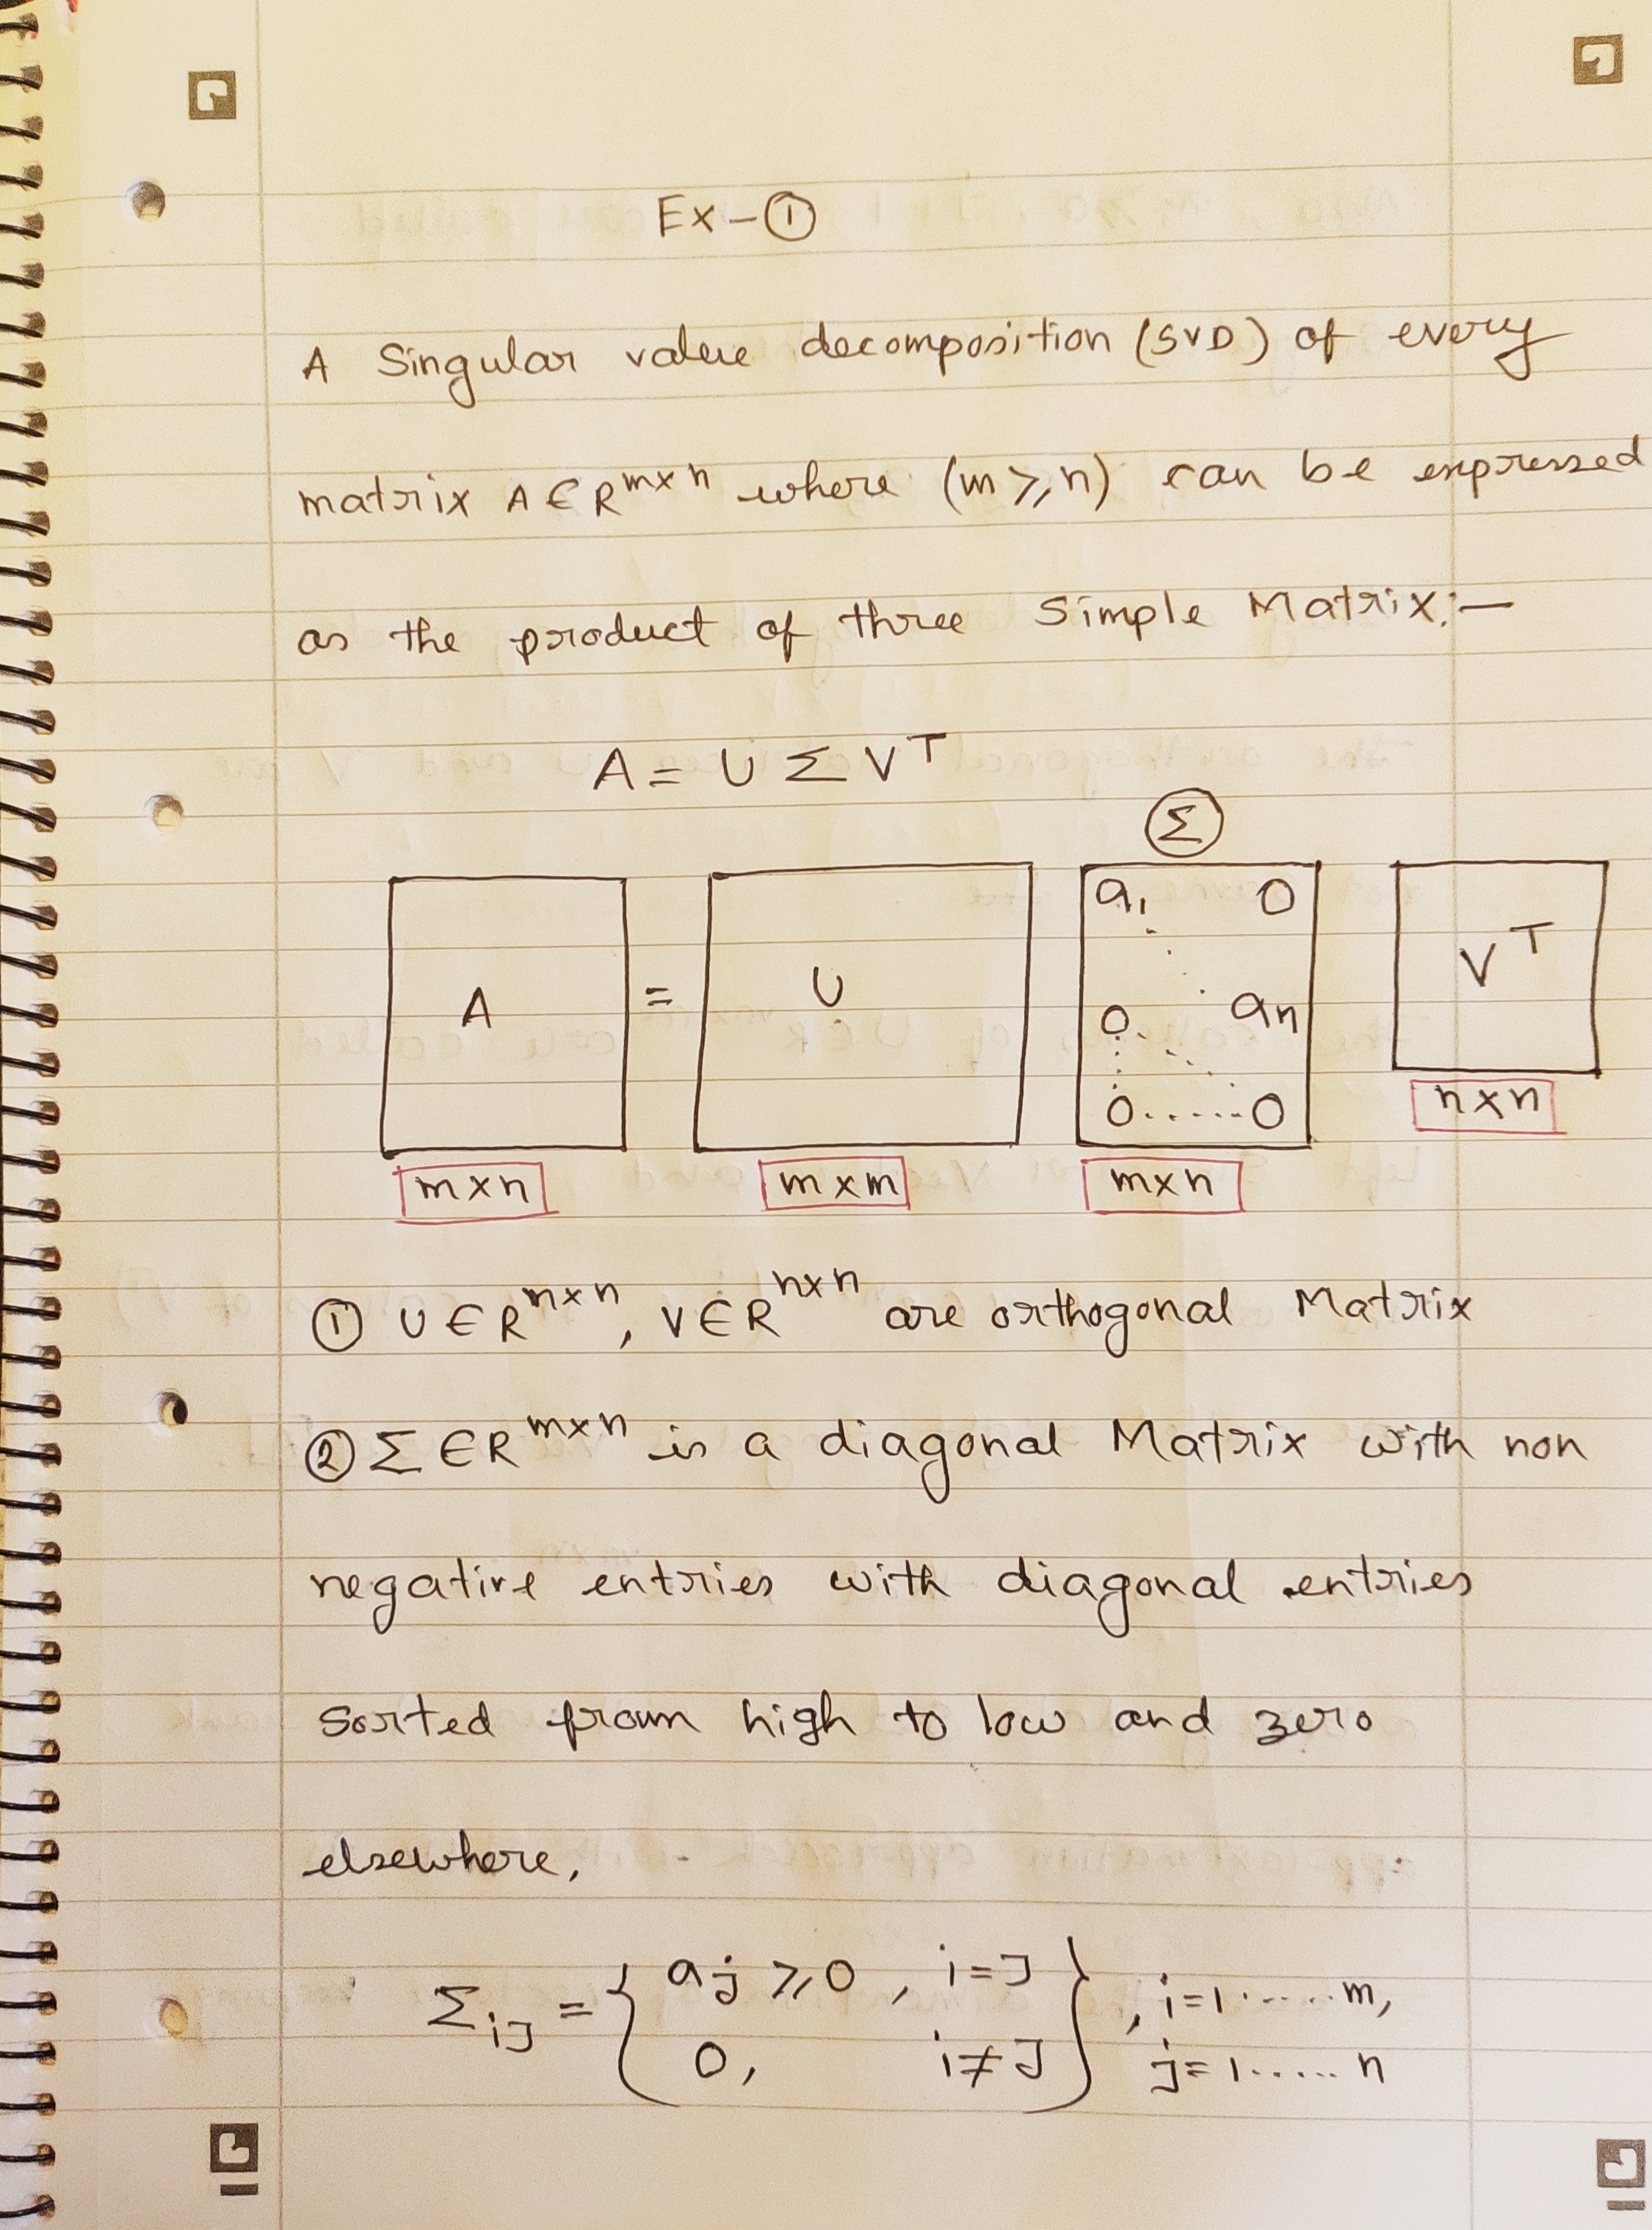 Ex-①
A Singular value decomposition (SVD) of every
matrix A ∈ R^{m×n} where (m ⩾ n) can be expressed
as the product of three Simple Matrix:-
A = U Σ V^T
Σ
A = U
a₁ 0
0 aₙ
0.....0
V^T
n×n
m×n m×m m×n
① U ∈ R^{n×n}, V ∈ R^{n×n} are orthogonal Matrix
② Σ ∈ R^{m×n} is a diagonal Matrix with non
negative entries with diagonal entries
sorted from high to low and zero
elsewhere,
Σ_{ij} = { a_j ⩾ 0, i=j
0, i≠j } , i=1.....m,
j=1.....n